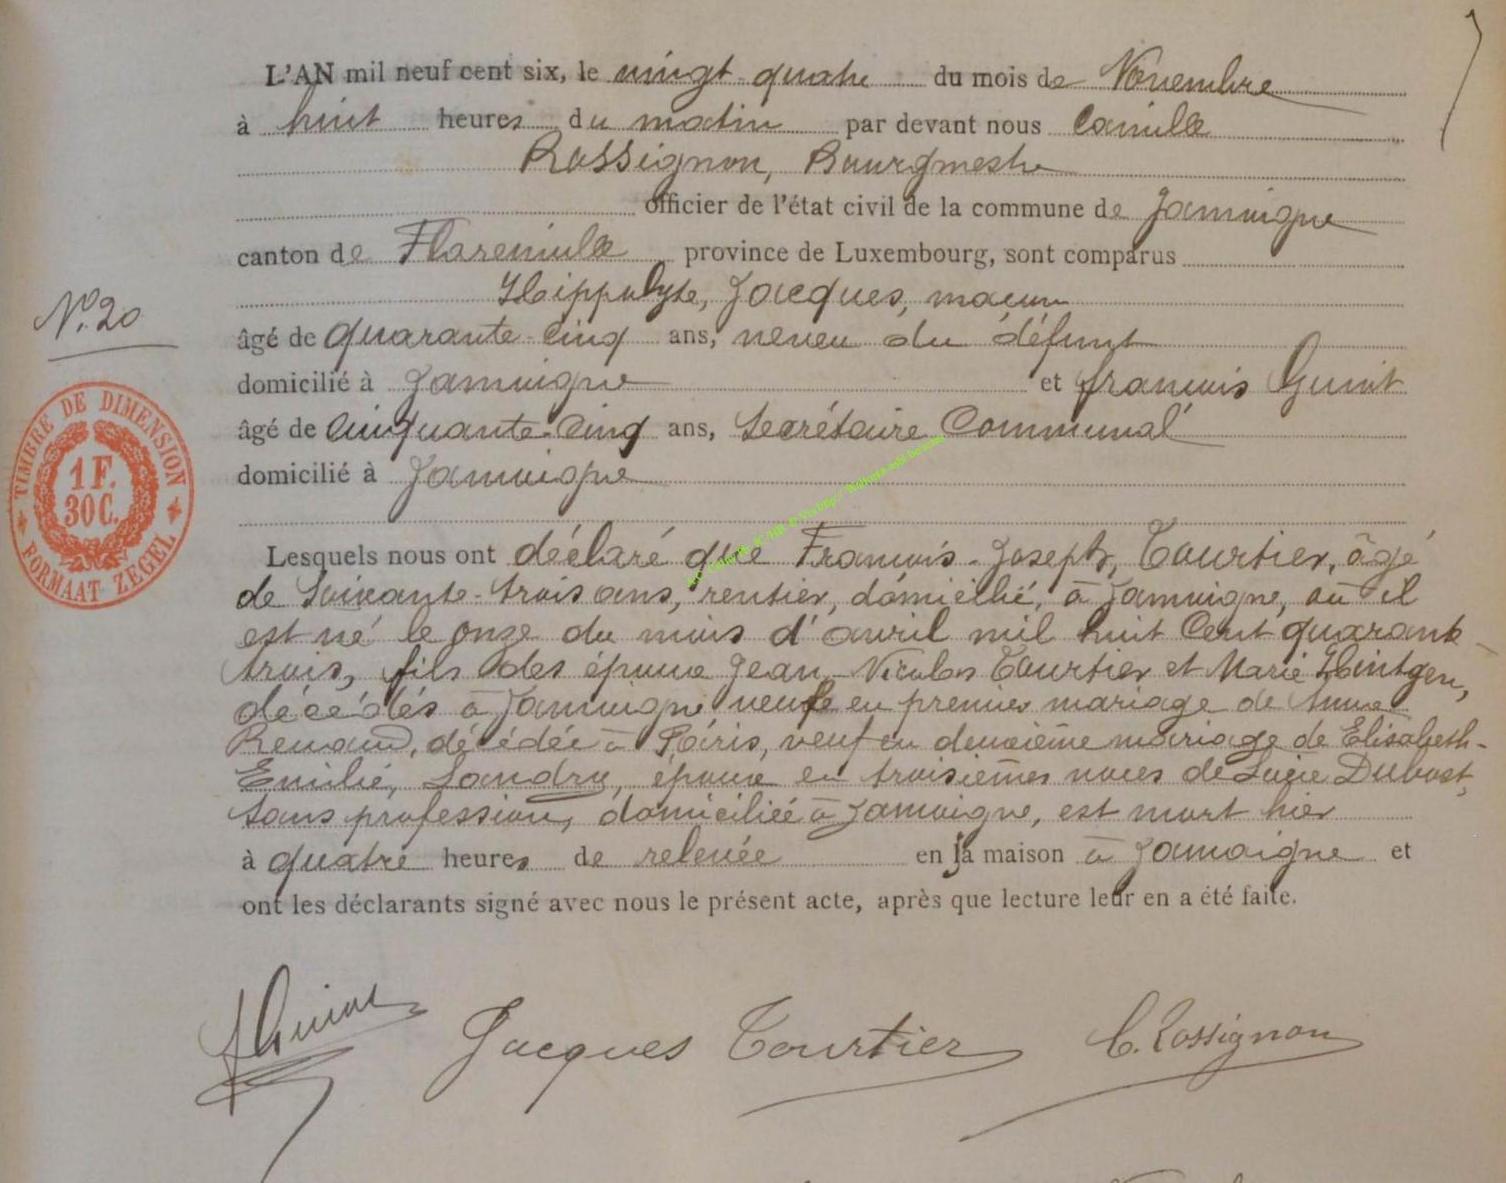 L'AN mil neuf cent six, le vingt-quatre du mois de Novembre
à huit heures du matin par devant nous Camille
Rossignon, Bourgmestre
officier de l'état civil de la commune de Jamoigne
canton de Florenville province de Luxembourg, sont comparus
Hippolyte, Jacques, maçon
N° 20
âgé de quarante-cinq ans, neveu du défunt
domicilié à Jamoigne et François Guiot
âgé de cinquante-cinq ans, Secrétaire Communal
domicilié à Jamoigne
TIMBRE DE DIMENSION
1 F.
30 C.
FORMAAT ZEGEL
Lesquels nous ont déclaré que François-Joseph, Tourtier, âgé
de soixante-trois ans, rentier, domicilié, à Jamoigne, où il
est né le onze du mois d'avril mil huit cent quarante-
trois, fils des époux Jean-Nicolas Tourtier et Marie Hintgen,
décédés à Jamoigne, veuf en premier mariage de Anne
Renaud, décédée à Paris, veuf en deuxième mariage de Elisabeth-
Emilie, Landry, époux en troisièmes noces de Lucie Dubost,
sans profession, domiciliée à Jamoigne, est mort hier
à quatre heures de relevée en la maison à Jamoigne et
ont les déclarants signé avec nous le présent acte, après que lecture leur en a été faite.
f Guiot Jacques Tourtier C. Rossignon